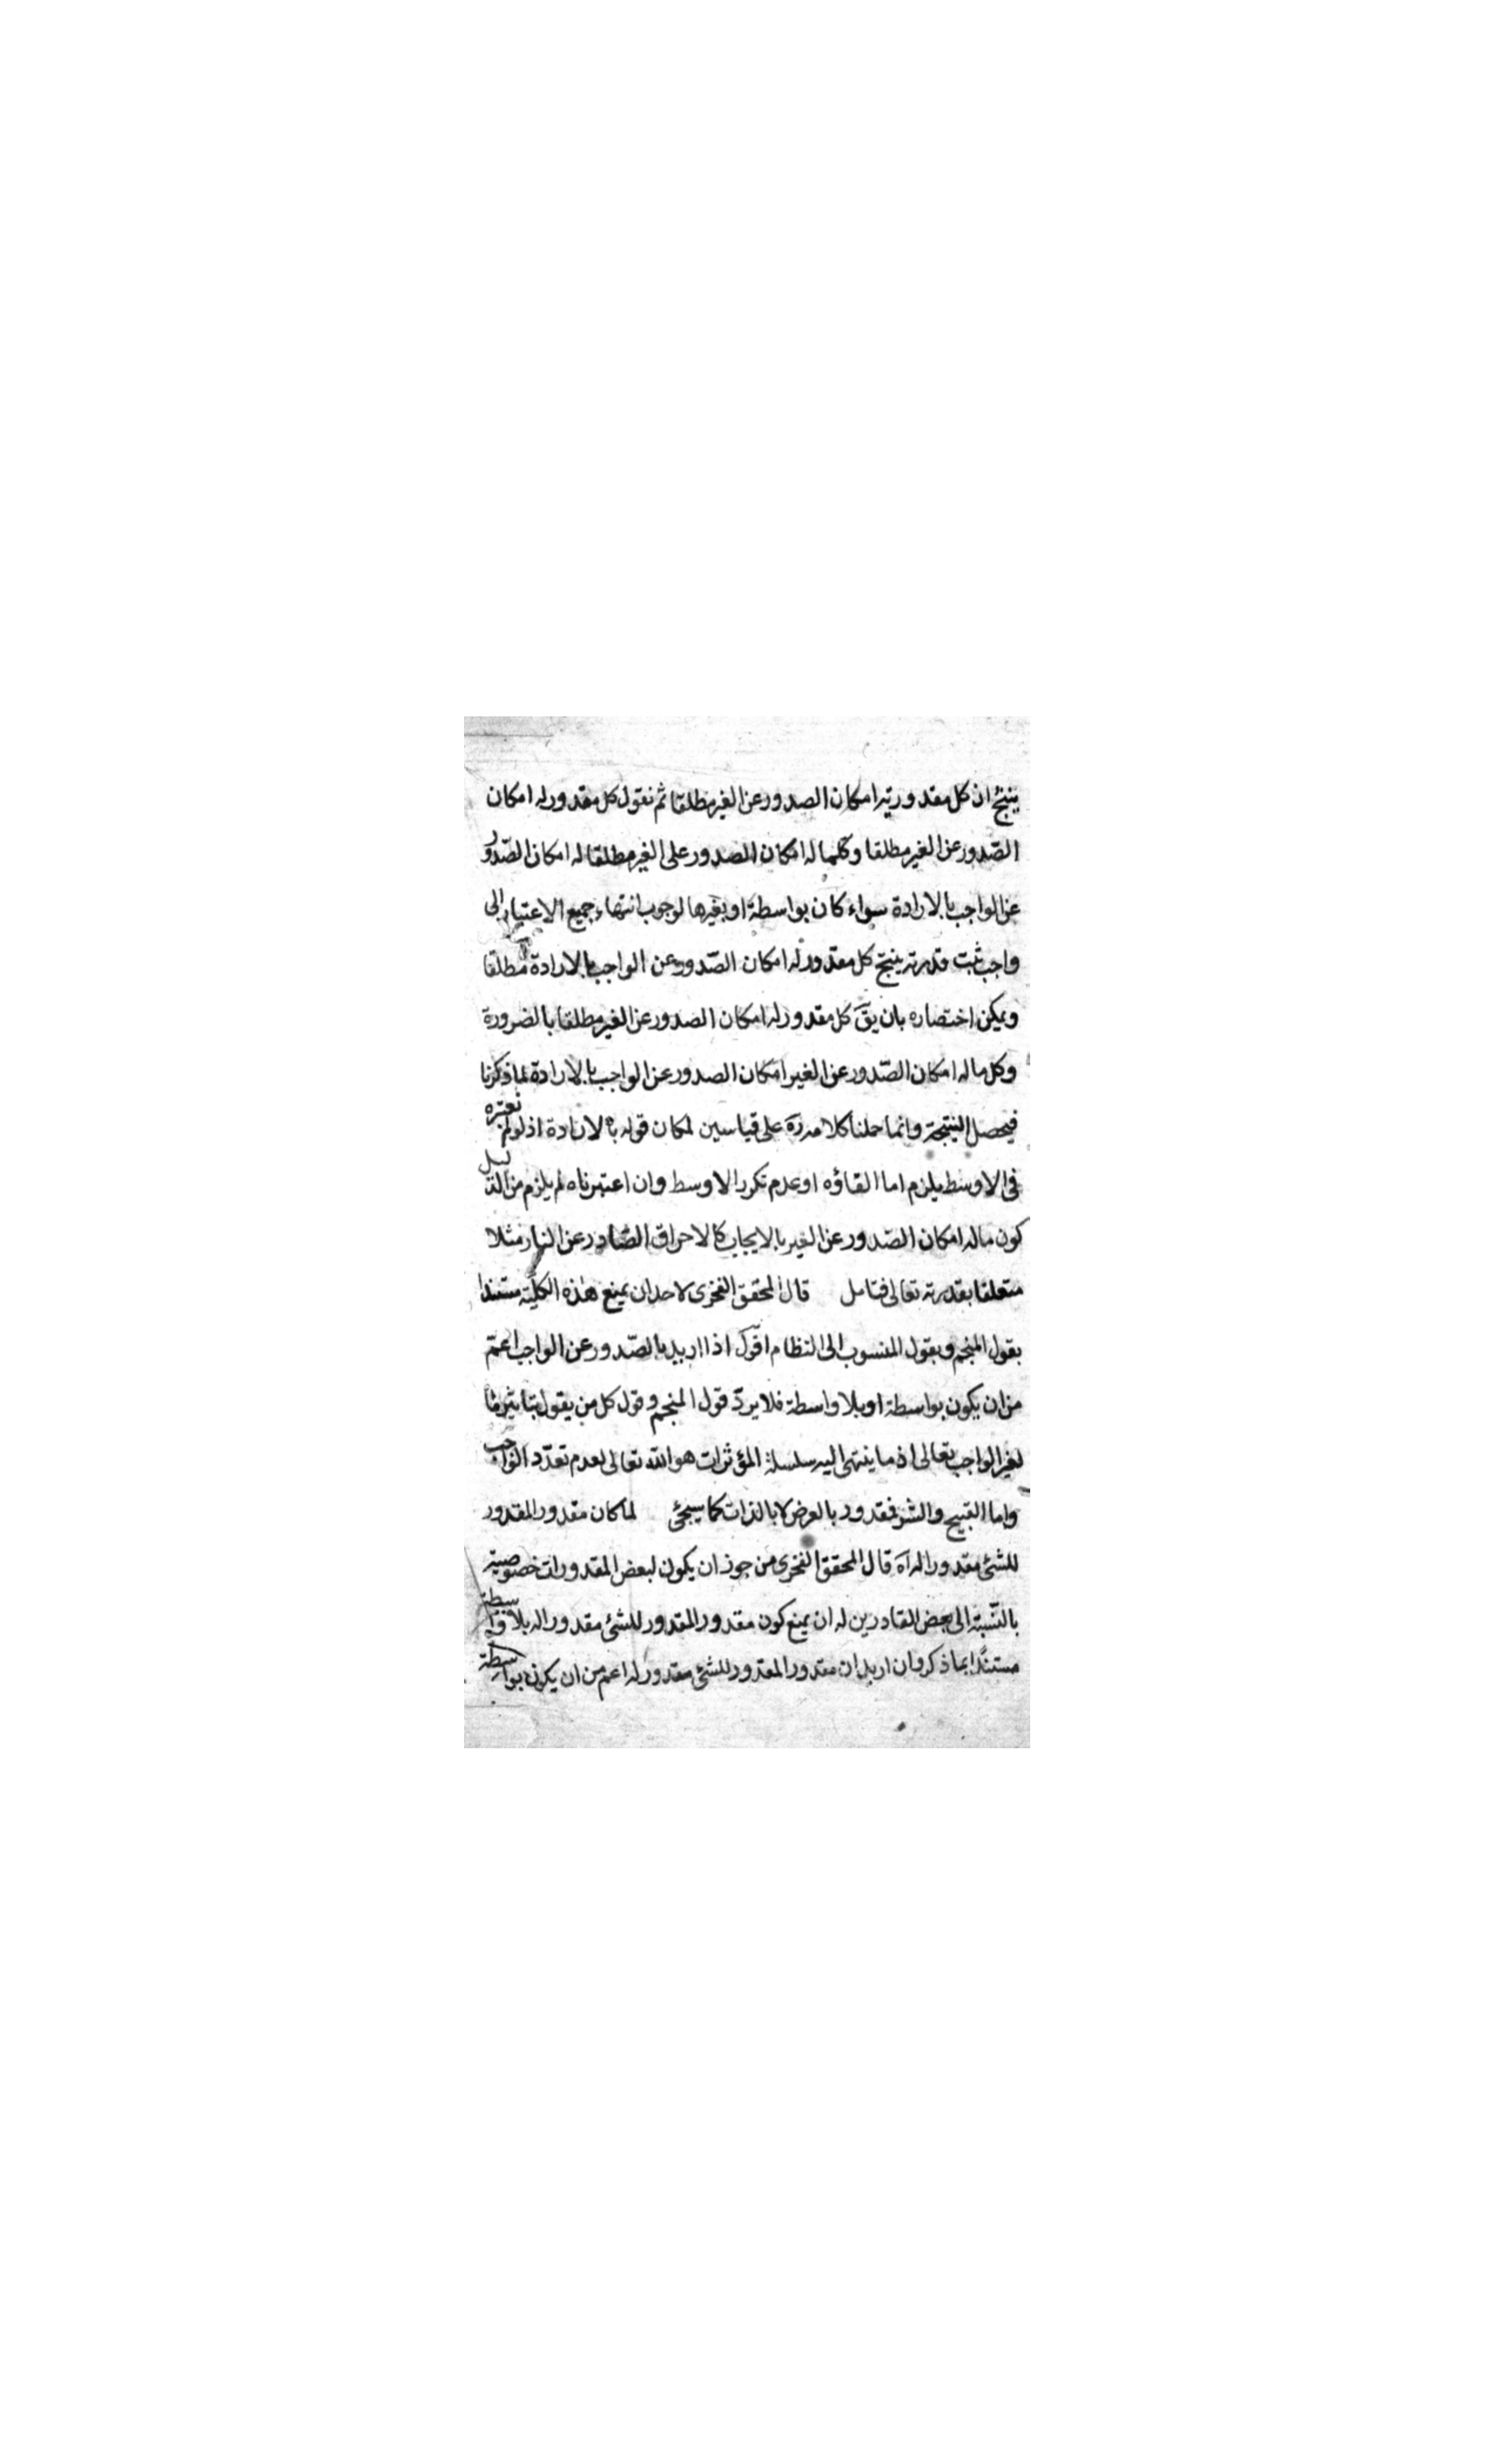 ينتج ان كل مقدوريته امكان الصدور عن الغير مطلقا ثم نقول كل مقدور له امكان
الصّدور عن الغير مطلقا وكلما له امكان الصدور على الغير مطلقا له امكان الصّدور
عن الواجب بالارادة سواء كان بواسطة او بغيرها لوجوب انتهاء جميع الاعتبار الى
واجب ثبت قدرته ينتج كل مقدور له امكان الصّدور عن الواجب بالارادة مطلقا
ويمكن اختصاره بان يقَ كل مقدور له امكان الصدور عن الغير مطلقا بالضرورة
وكل ما له امكان الصّدور عن الغير امكان الصدور عن الواجب بالارادة لما ذكرنا
فيحصل النتيجة وانما حملنا كلامه رَه على قياسين لمكان قوله بالارادة اذ لو لم نعتبره
فى الاوسط يلزم اما القاؤه او عدم تكرر الاوسط وان اعتبرناه لم يلزم من الدليل
كون ما له امكان الصّدور عن الغير بالايجاب كالاحراق الصّادر عن النار مثلا
متعلقا بقدرته تعالى فتامل قال المحقق الفخرى لاحد ان يمنع هذه الكليّة مستندا
بقول المنجم وبقول المنسوب الى النظام اقول اذا اريد بالصّدور عن الواجب اعمّ
من ان يكون بواسطة او بلا واسطة فلا يردّ قول المنجم وقول كل من يقول بتاثير ما
لغير الواجب تعالى اذ ما ينتهى اليه سلسلة المؤثرات هو الله تعالى لعدم تعدّد الواجب
واما القبيح والشر فمقدور بالعرض لا بالذات كما سيجئ لما كان مقدور المقدور
للشئ مقدورا له آه قال المحقق الفخرى من جوز ان يكون لبعض المقدورات خصوصية
بالنّسبة الى بعض القادرين له ان يمنع كون مقدور المقدور للشئ مقدورا له بلا واسطة
مستندًا بما ذكر وان اريد ان مقدور المقدور للشئ مقدور له اعم من ان يكون بواسطة